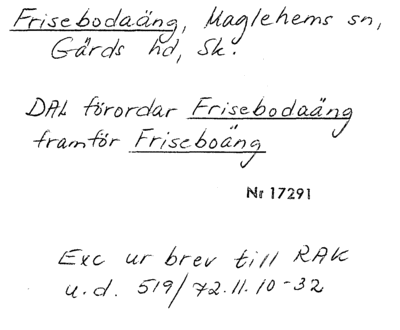 Frisebodaäng, Maglehems sn,
Gärds hd, Sk.
DAL förordar Frisebodaäng
framför Friseboäng
Nr 17291
Exc ur brev till RAK
u.d. 519/72.11.10-32